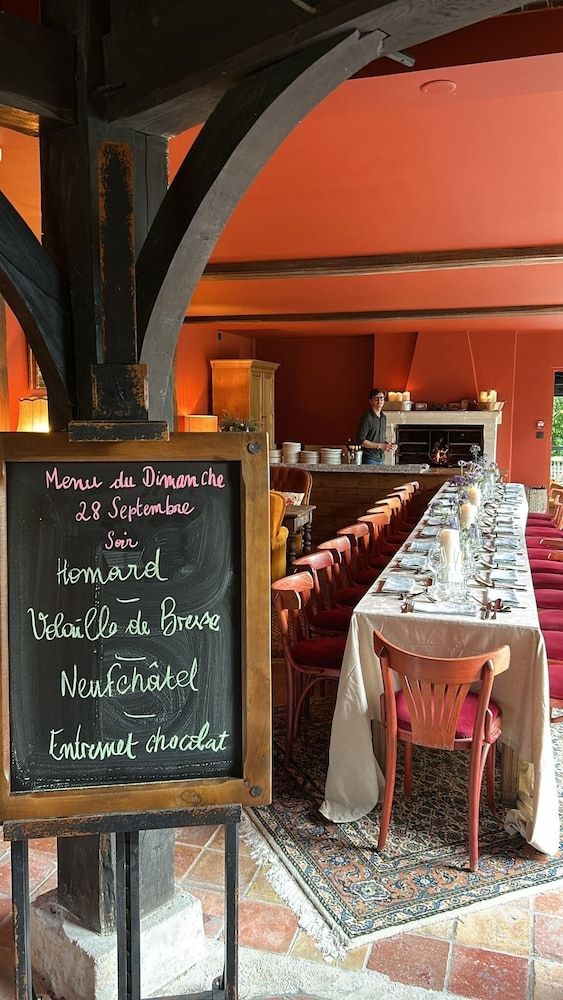 Menu du Dimanche
28 Septembre
Soir
Homard
Volaille de Bresse
Neufchâtel
Entremet chocolat